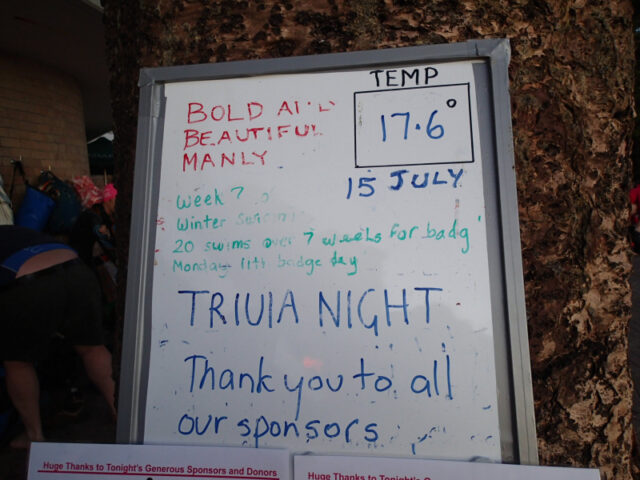 TEMP
17.6°
15 JULY
BOLD
BEAUTIFUL
MANLY
Week 7
Winter
20 swims over 7 weeks for badg
Monday 11th badge day
TRIVIA NIGHT
Thank you to all
our sponsors
Huge Thanks to Tonight's Generous Sponsors and Donors
Huge Thanks to Tonight's